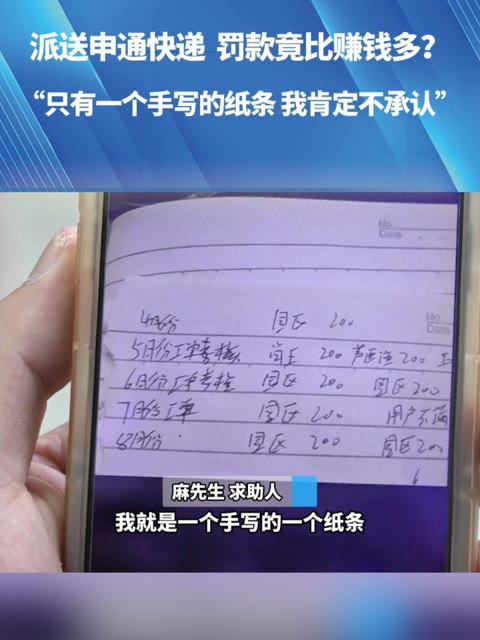 派送申通快递 罚款竟比赚钱多?
“只有一个手写的纸条 我肯定不承认”
No.
Date
No.
Date
4月份 200
5月份工单考核 200 200 工
6月份工单考核 200 200
7月份工单 200 用户不满
8月份 200 200
6
麻先生 求助人
我就是一个手写的一个纸条